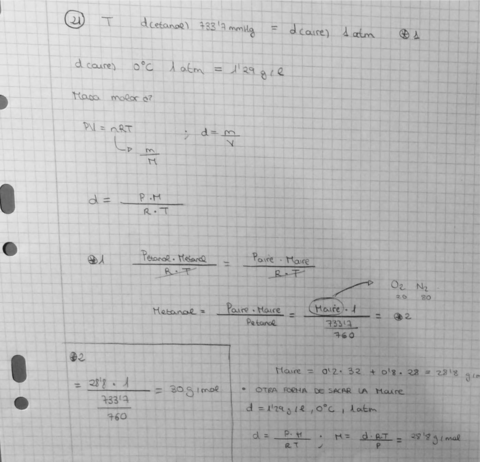 21 T d(etanal) 733'7 mmHg = d(aire) 1 atm ⊛1
d(aire) 0°C 1 atm = 1'29 g/l
Masa molar?
PV = nRT ; d = m/V
m/M
d = P·M / R·T
⊛1 Petanal · Metanal / R·T = Paire · Maire / R·T
O2 N2
20 80
Metanal = Paire · Maire / Petanal = Maire · 1 / 733'7/760 = ⊛2
⊛2
= 28'8 · 1 / 733'7/760 = 30 g/mol
Maire = 0'2 · 32 + 0'8 · 28 = 28'8 g/mol
• OTRA FORMA DE SACAR LA Maire
d = 1'29 g/l, 0°C, 1 atm
d = P·M / RT ; M = d RT / P = 28'8 g/mol